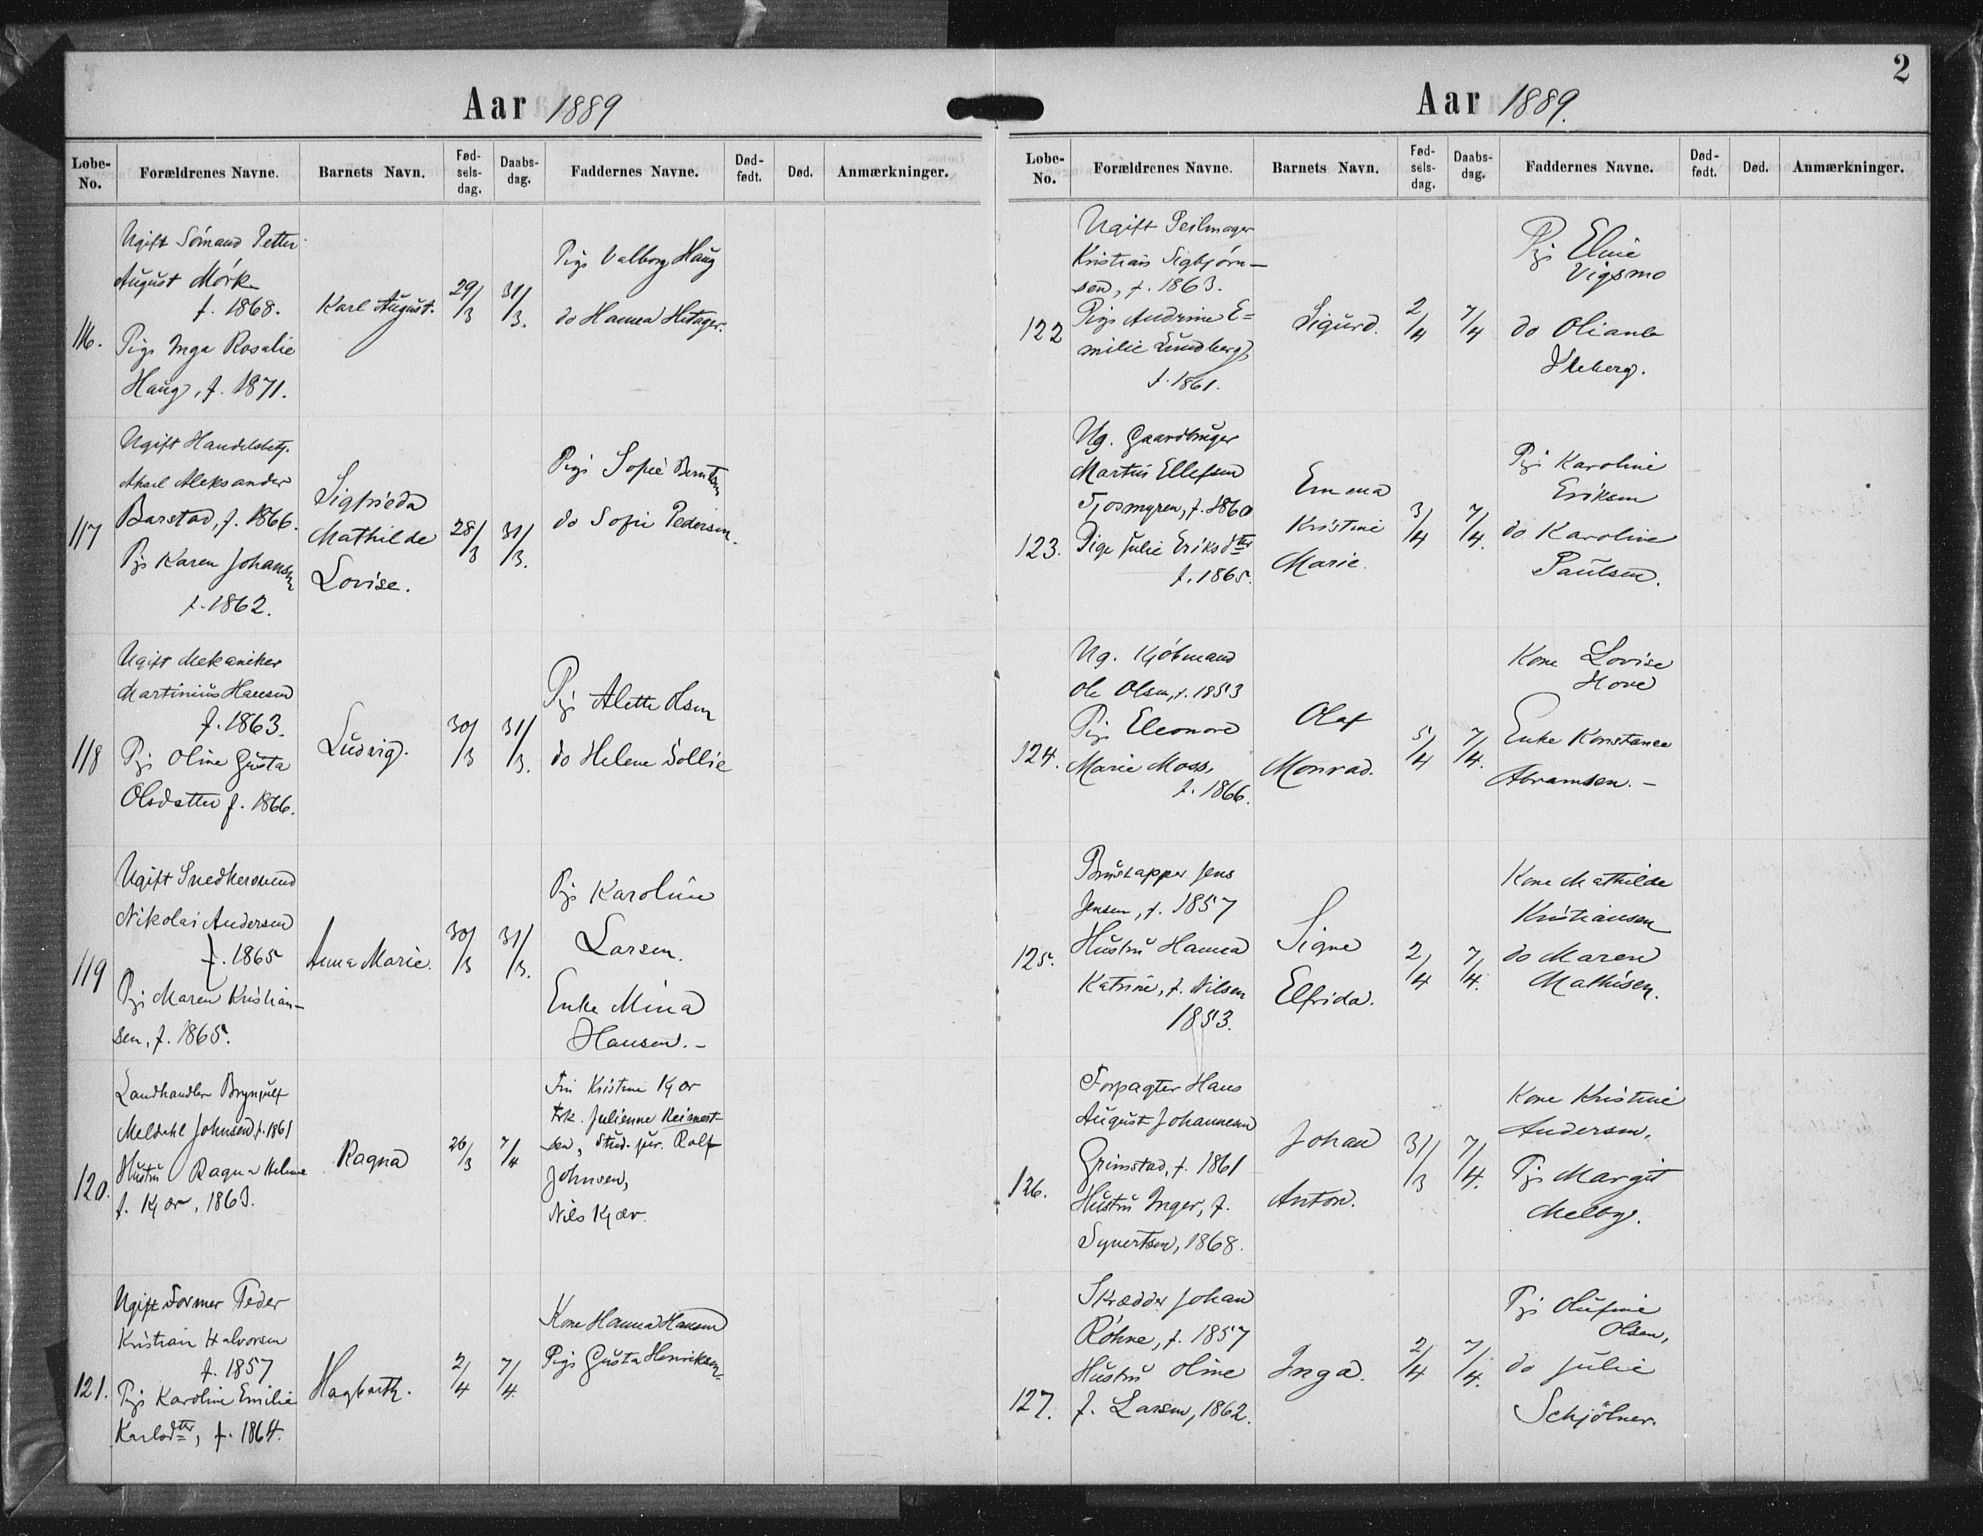 2
Aar 1889
Løbe-No. Forældrenes Navne. Barnets Navn. Fød-sels-dag. Daabs-dag. Faddernes Navne. Død-født. Død. Anmærkninger.
116.
Ugift Sömand Petter
August Mörk
f. 1868.
Pige Inga Rosalie
Haug, f. 1871.
Karl August.
29/3
31/3.
Pige Valborg Haug
do Hanna
117
Ugift Handelsbetj.
Aksel Aleksander
Barstad, f. 1866.
Pige Karen Johansen
f. 1862.
Sigfrieda
Mathilde
Lovise.
28/3
31/3.
Pige Sofie Berntsen
do Sofie Pedersen.
118
Ugift Mekaniker
Martinius Hansen
f. 1863.
Pige Oline Gusta
Olsdatter f. 1866.
Ludvig.
30/3
31/3.
Pige Alette Olsen
do Helene Sollie
119
Ugift Snedkersvend
Nikolai Andersen
f. 1865
Pige Maren Kristian-
sen, f. 1865.
Anna Marie.
30/3
31/3.
Pige Karoline
Larsen.
Enke Mina
Hansen. –
120.
Landhandler Brynjulf
Meldahl Johnsen, f. 1861
Hustru Ragna Helene
f. Kjær, 1863.
Ragna
26/3
7/4
Fru Kristine Kjær
Frk. Julienne Reimert-
sen, Stud. jur. Rolf
Johnsen,
Nils Kjær.
121.
Ugift Former Peder
Kristian Halvorsen
f. 1857
Pige Karoline Emilie
Karlsdtr, f. 1864.
Hagbarth.
2/4
7/4.
Kone Hanna Hansen
Pige Gusta Henriksen.
Aar 1889.
Løbe-No. Forældrenes Navne. Barnets Navn. Fød-sels-dag. Daabs-dag. Faddernes Navne. Død-født. Død. Anmærkninger.
122
Ugift Seilmager
Kristian Sigbjörn-
sen, f. 1863.
Pige Andrine E=
milie Lundberg,
f. 1861.
Sigurd.
2/4
7/4
Pige Eline
Vigsmo
do Olianb
Kleberg.
123.
Ug. Gaardbruger
Martin Ellefsen
Tjosmyren, f. 1860
Pige Julie Eriksdtr
f. 1865.
Emma
Kristine
Marie.
3/4
7/4.
Pige Karoline
Eriksen
do Karoline
Paulsen.
124.
Ug. Kjöbmand
Ole Olsen, f. 1853
Pige Eleonore
Marie Moss,
f. 1866.
Olaf
Monrad.
5/4
7/4.
Kone Lovise
Hove
Enke Konstance
Abramsen. –
125.
Brustapper Jens
Jensen, f. 1857
Hustru Hanna
Katrine, f. Nilsen
1853.
Signe
Elfrida.
2/4
7/4.
Kone Mathilde
Kristiansen
do Maren
Mathisen.
126.
Forpagter Hans
August Johannesen
Grimstad, f. 1861
Hustru Inger, f.
Syvertsen, 1868.
Johan
Anton.
31/3
7/4.
Kone Kristine
Andersen,
Pige Margit
Melby.
127.
Skrædder Johan
Röhne, f. 1857
Hustru Oline
f. Larsen, 1862.
Inga.
2/4
7/4.
Pige Olufine
Olsen,
do Julie
Schjölner.